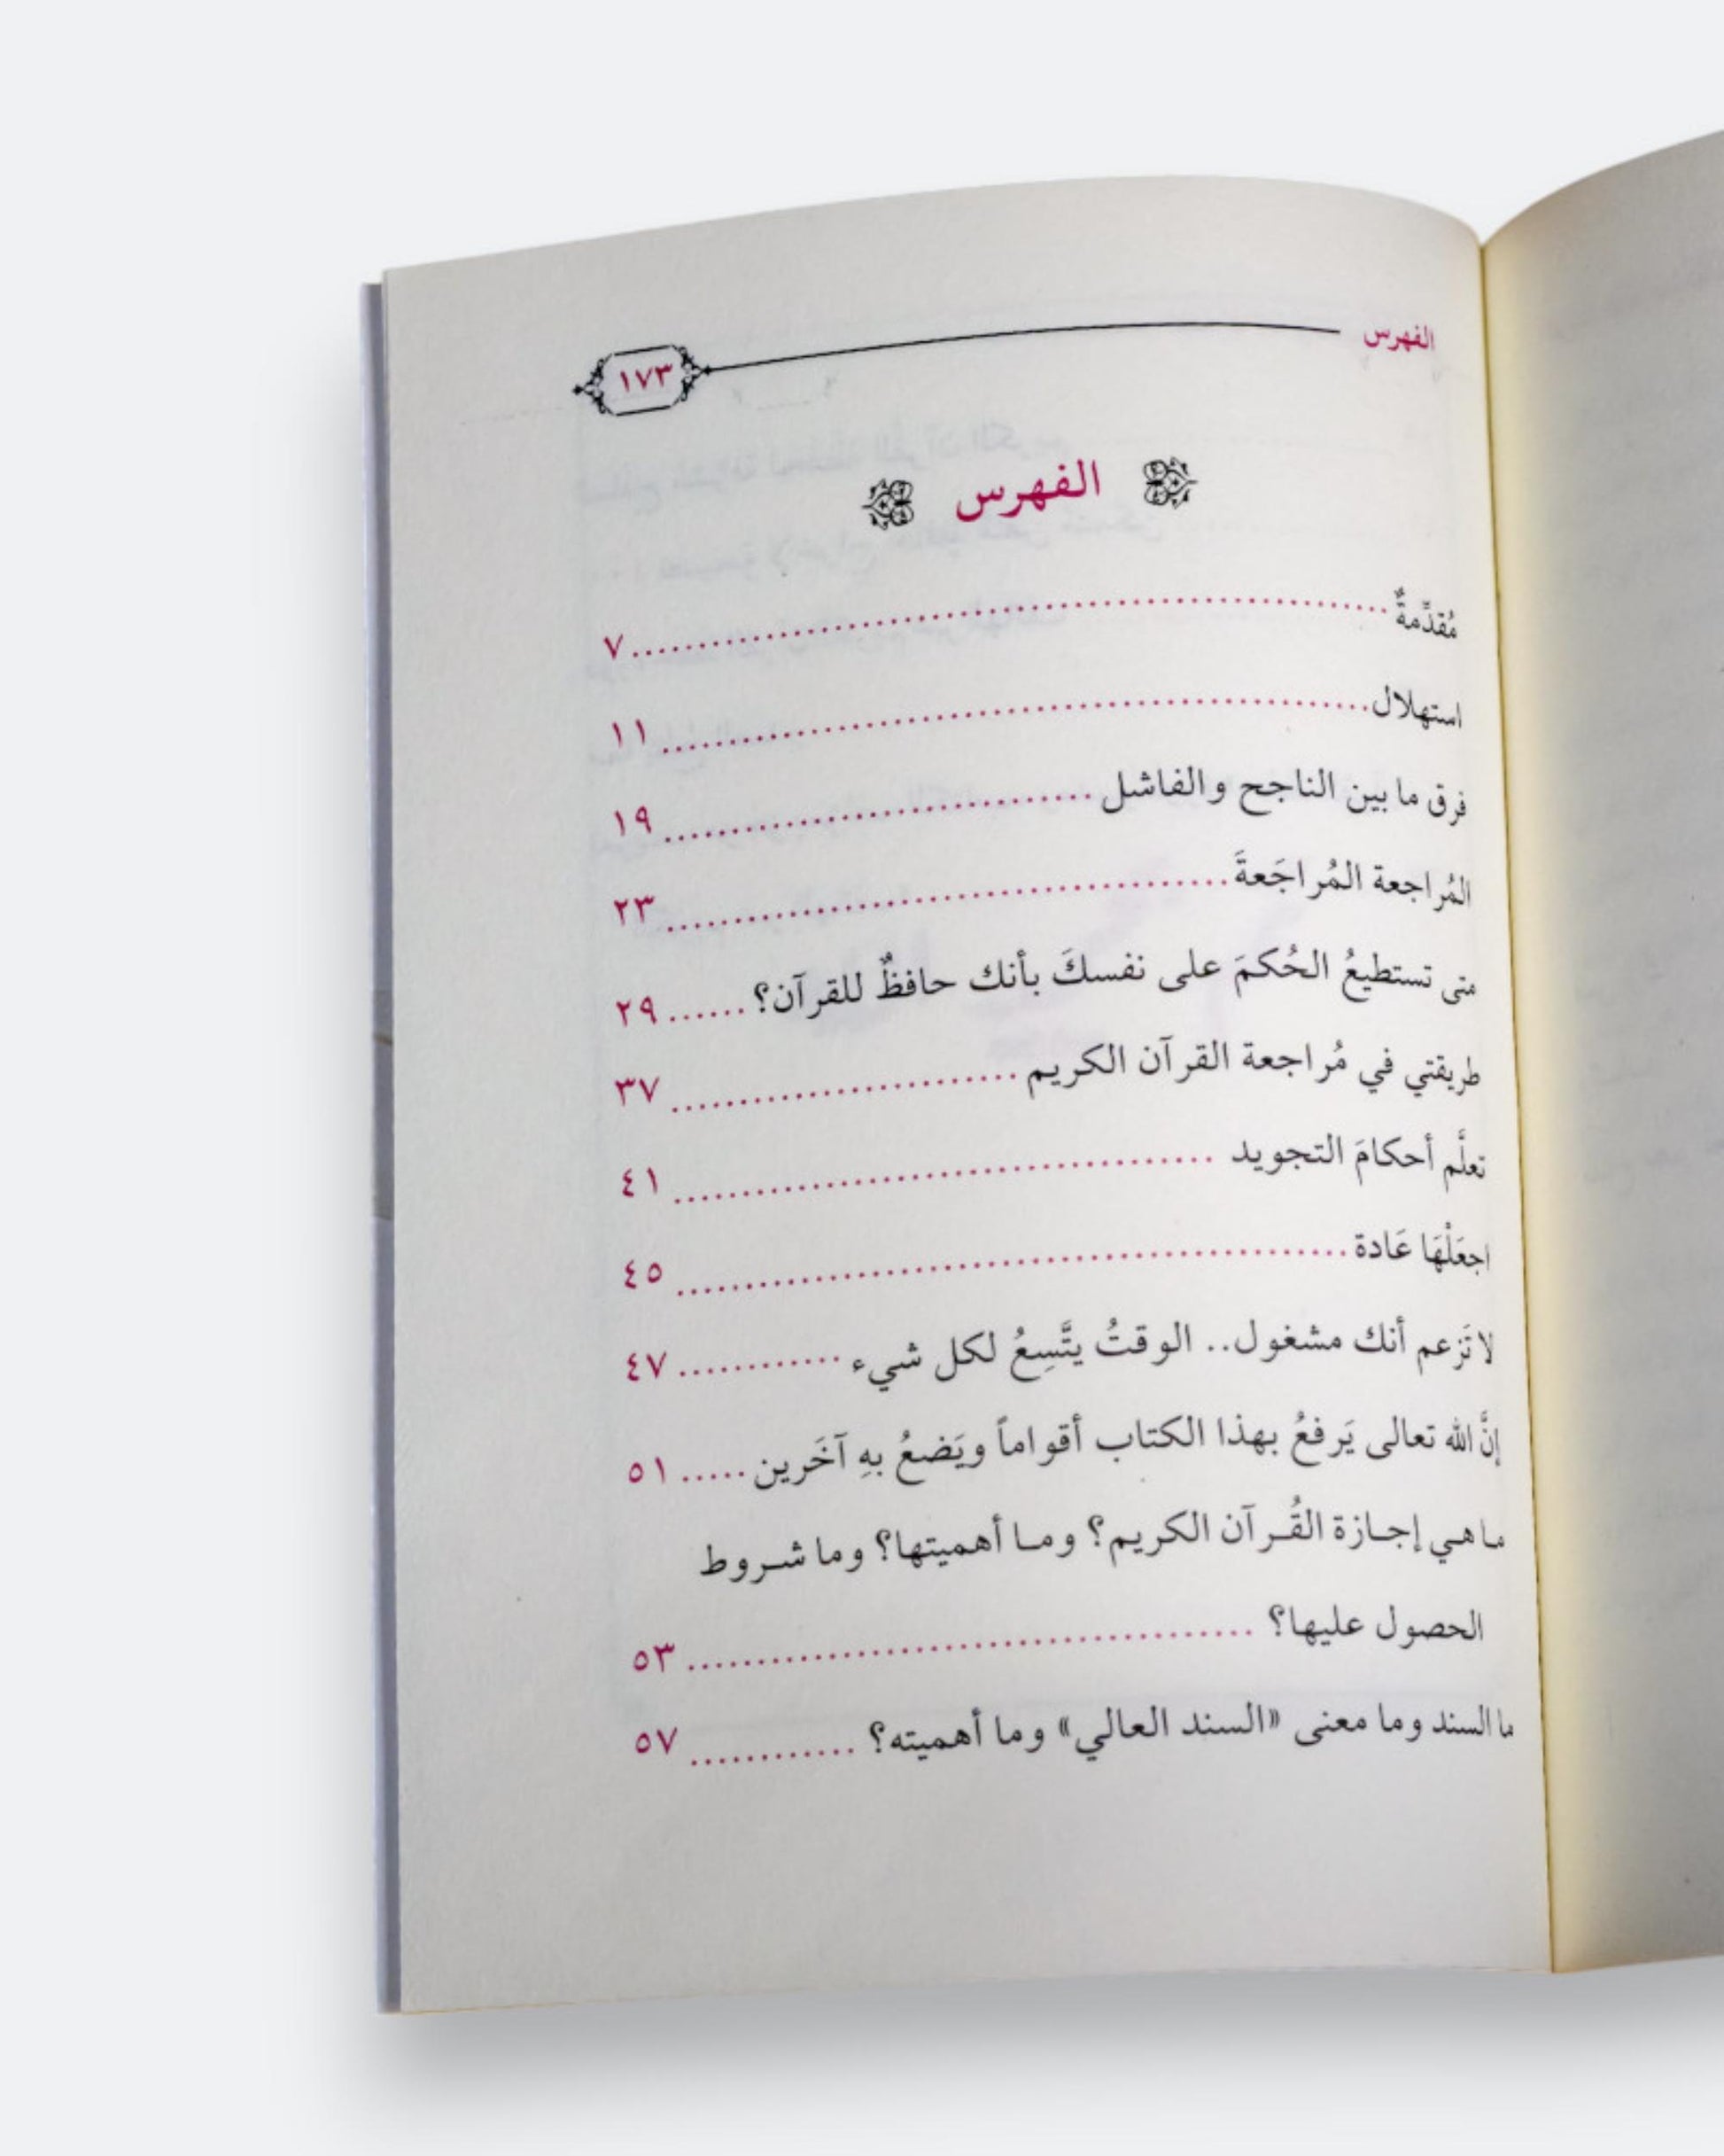 الفهرس ١٧٣
الفهرس
مُقدِّمةٌ ........ ٧
استهلال ........ ١١
فرق ما بين الناجح والفاشل ........ ١٩
المُراجعة المُراجَعةَ ........ ٢٣
متى تستطيعُ الحُكمَ على نفسكَ بأنك حافظٌ للقرآن؟ ...... ٢٩
طريقتي في مُراجعة القرآن الكريم ........ ٣٧
تعلَّم أحكامَ التجويد ........ ٤١
اجعَلْهَا عَادة ........ ٤٥
لا تَزعم أنك مشغول.. الوقتُ يتَّسِعُ لكل شيء ........ ٤٧
إنَّ الله تعالى يَرفعُ بهذا الكتاب أقواماً ويَضعُ بهِ آخَرين ..... ٥١
ما هـي إجـازة القُـرآن الكريم؟ ومـا أهميتها؟ وما شـروط
الحصول عليها؟ ........ ٥٣
ما السند وما معنى «السند العالي» وما أهميته؟ ........ ٥٧